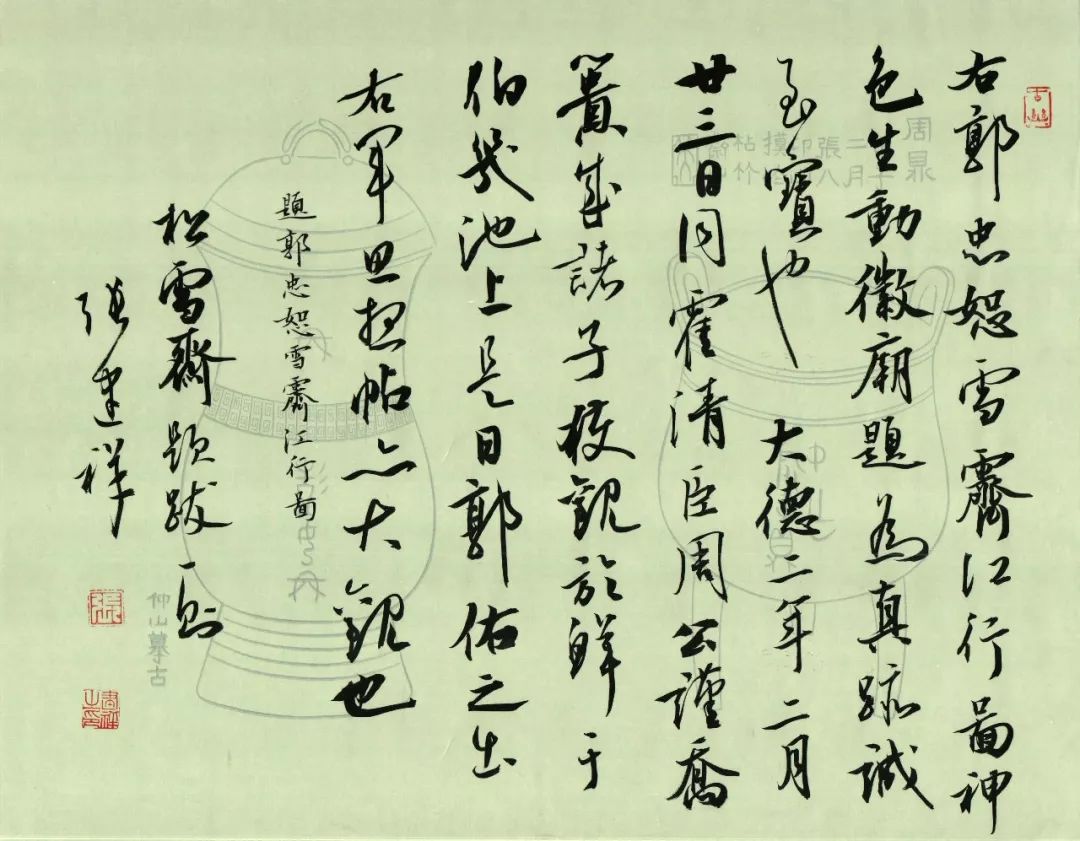 右郭忠恕雪霽江行啚神
色生動徽廟題為真跡誠
至寶也大德二年二月
廿三日同霍清臣周公謹喬
簣成諸子獲觀於鮮于
伯幾池上是日郭佑之出
右軍思想帖亦大觀也
題郭忠恕雪霽江行啚
松雪齋題跋一則
張建祥
仲山摹古